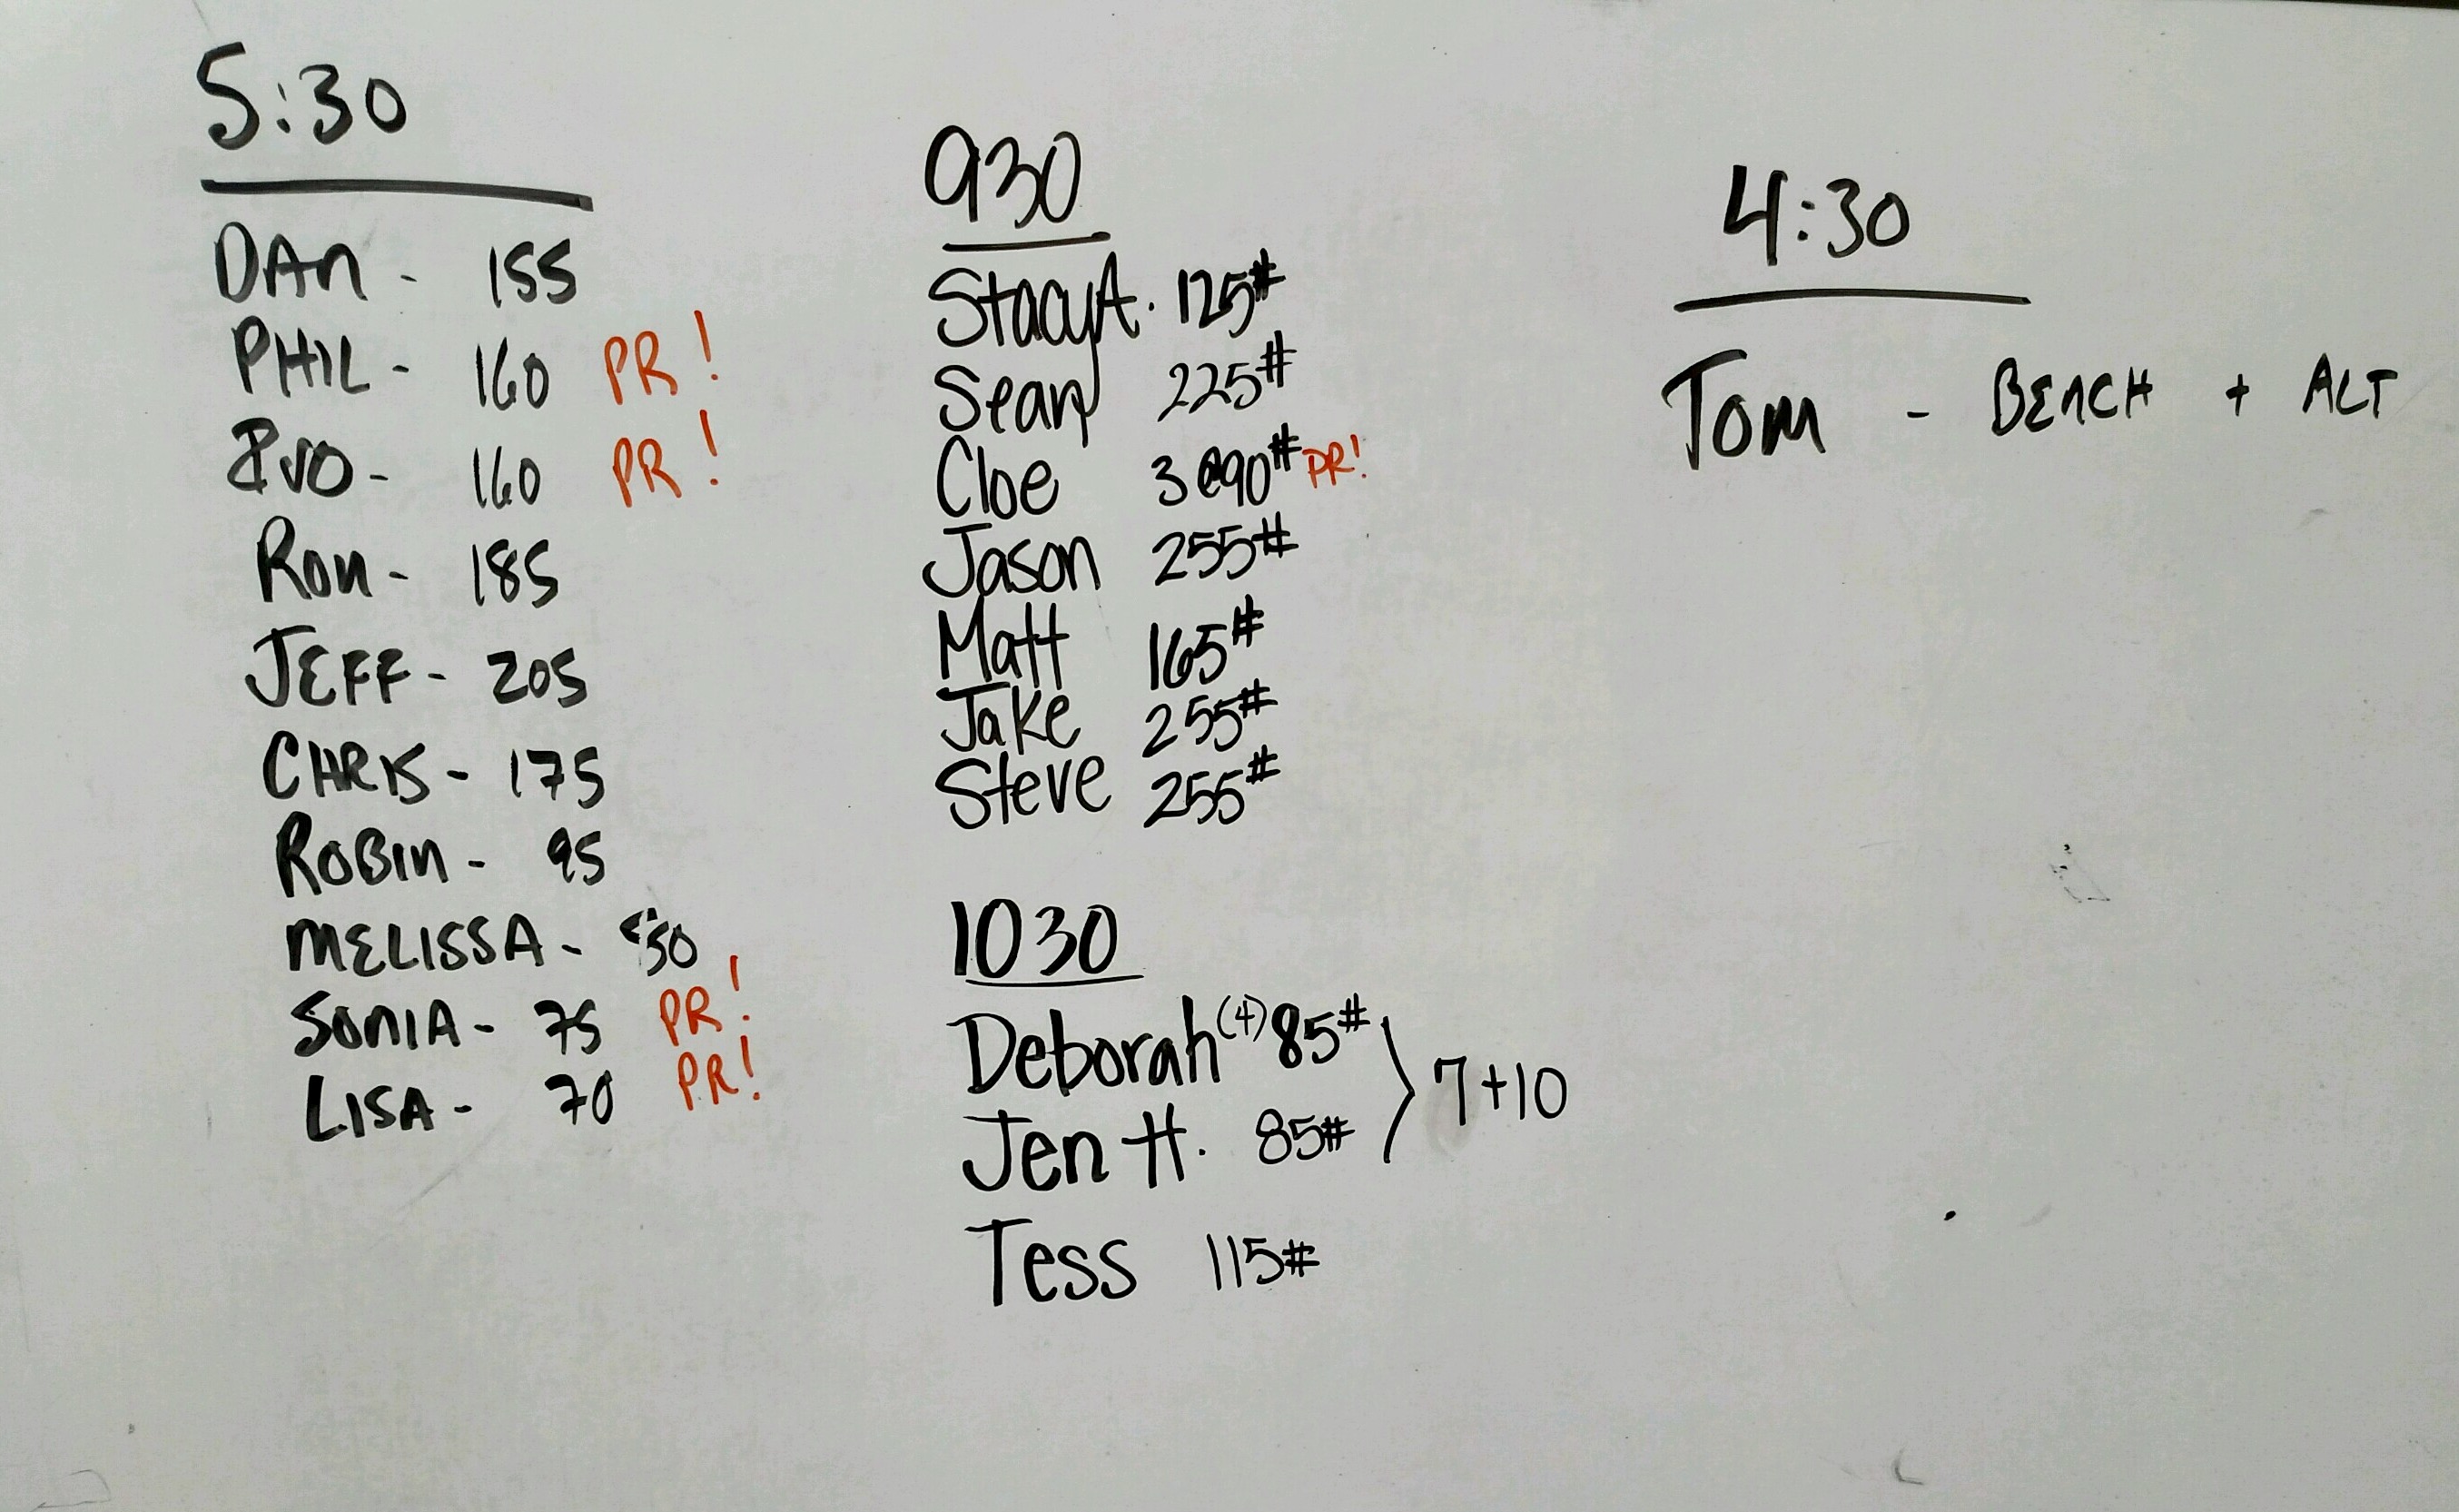 5:30
DAN - 155
PHIL - 160 PR!
- 160 PR!
RON - 185
JEFF - 205
CHRIS - 175
ROBIN - 95
MELISSA - 50
SONIA - 75 PR!
LISA - 70 PR!
930
Stacy A. 125#
Sean 225#
Cloe 3@90# PR!
Jason 255#
Matt 165#
Jake 255#
Steve 255#
1030
Deborah (4) 85#
7+10
Jen H. 85#
Tess 115#
4:30
Tom - BENCH + ALT